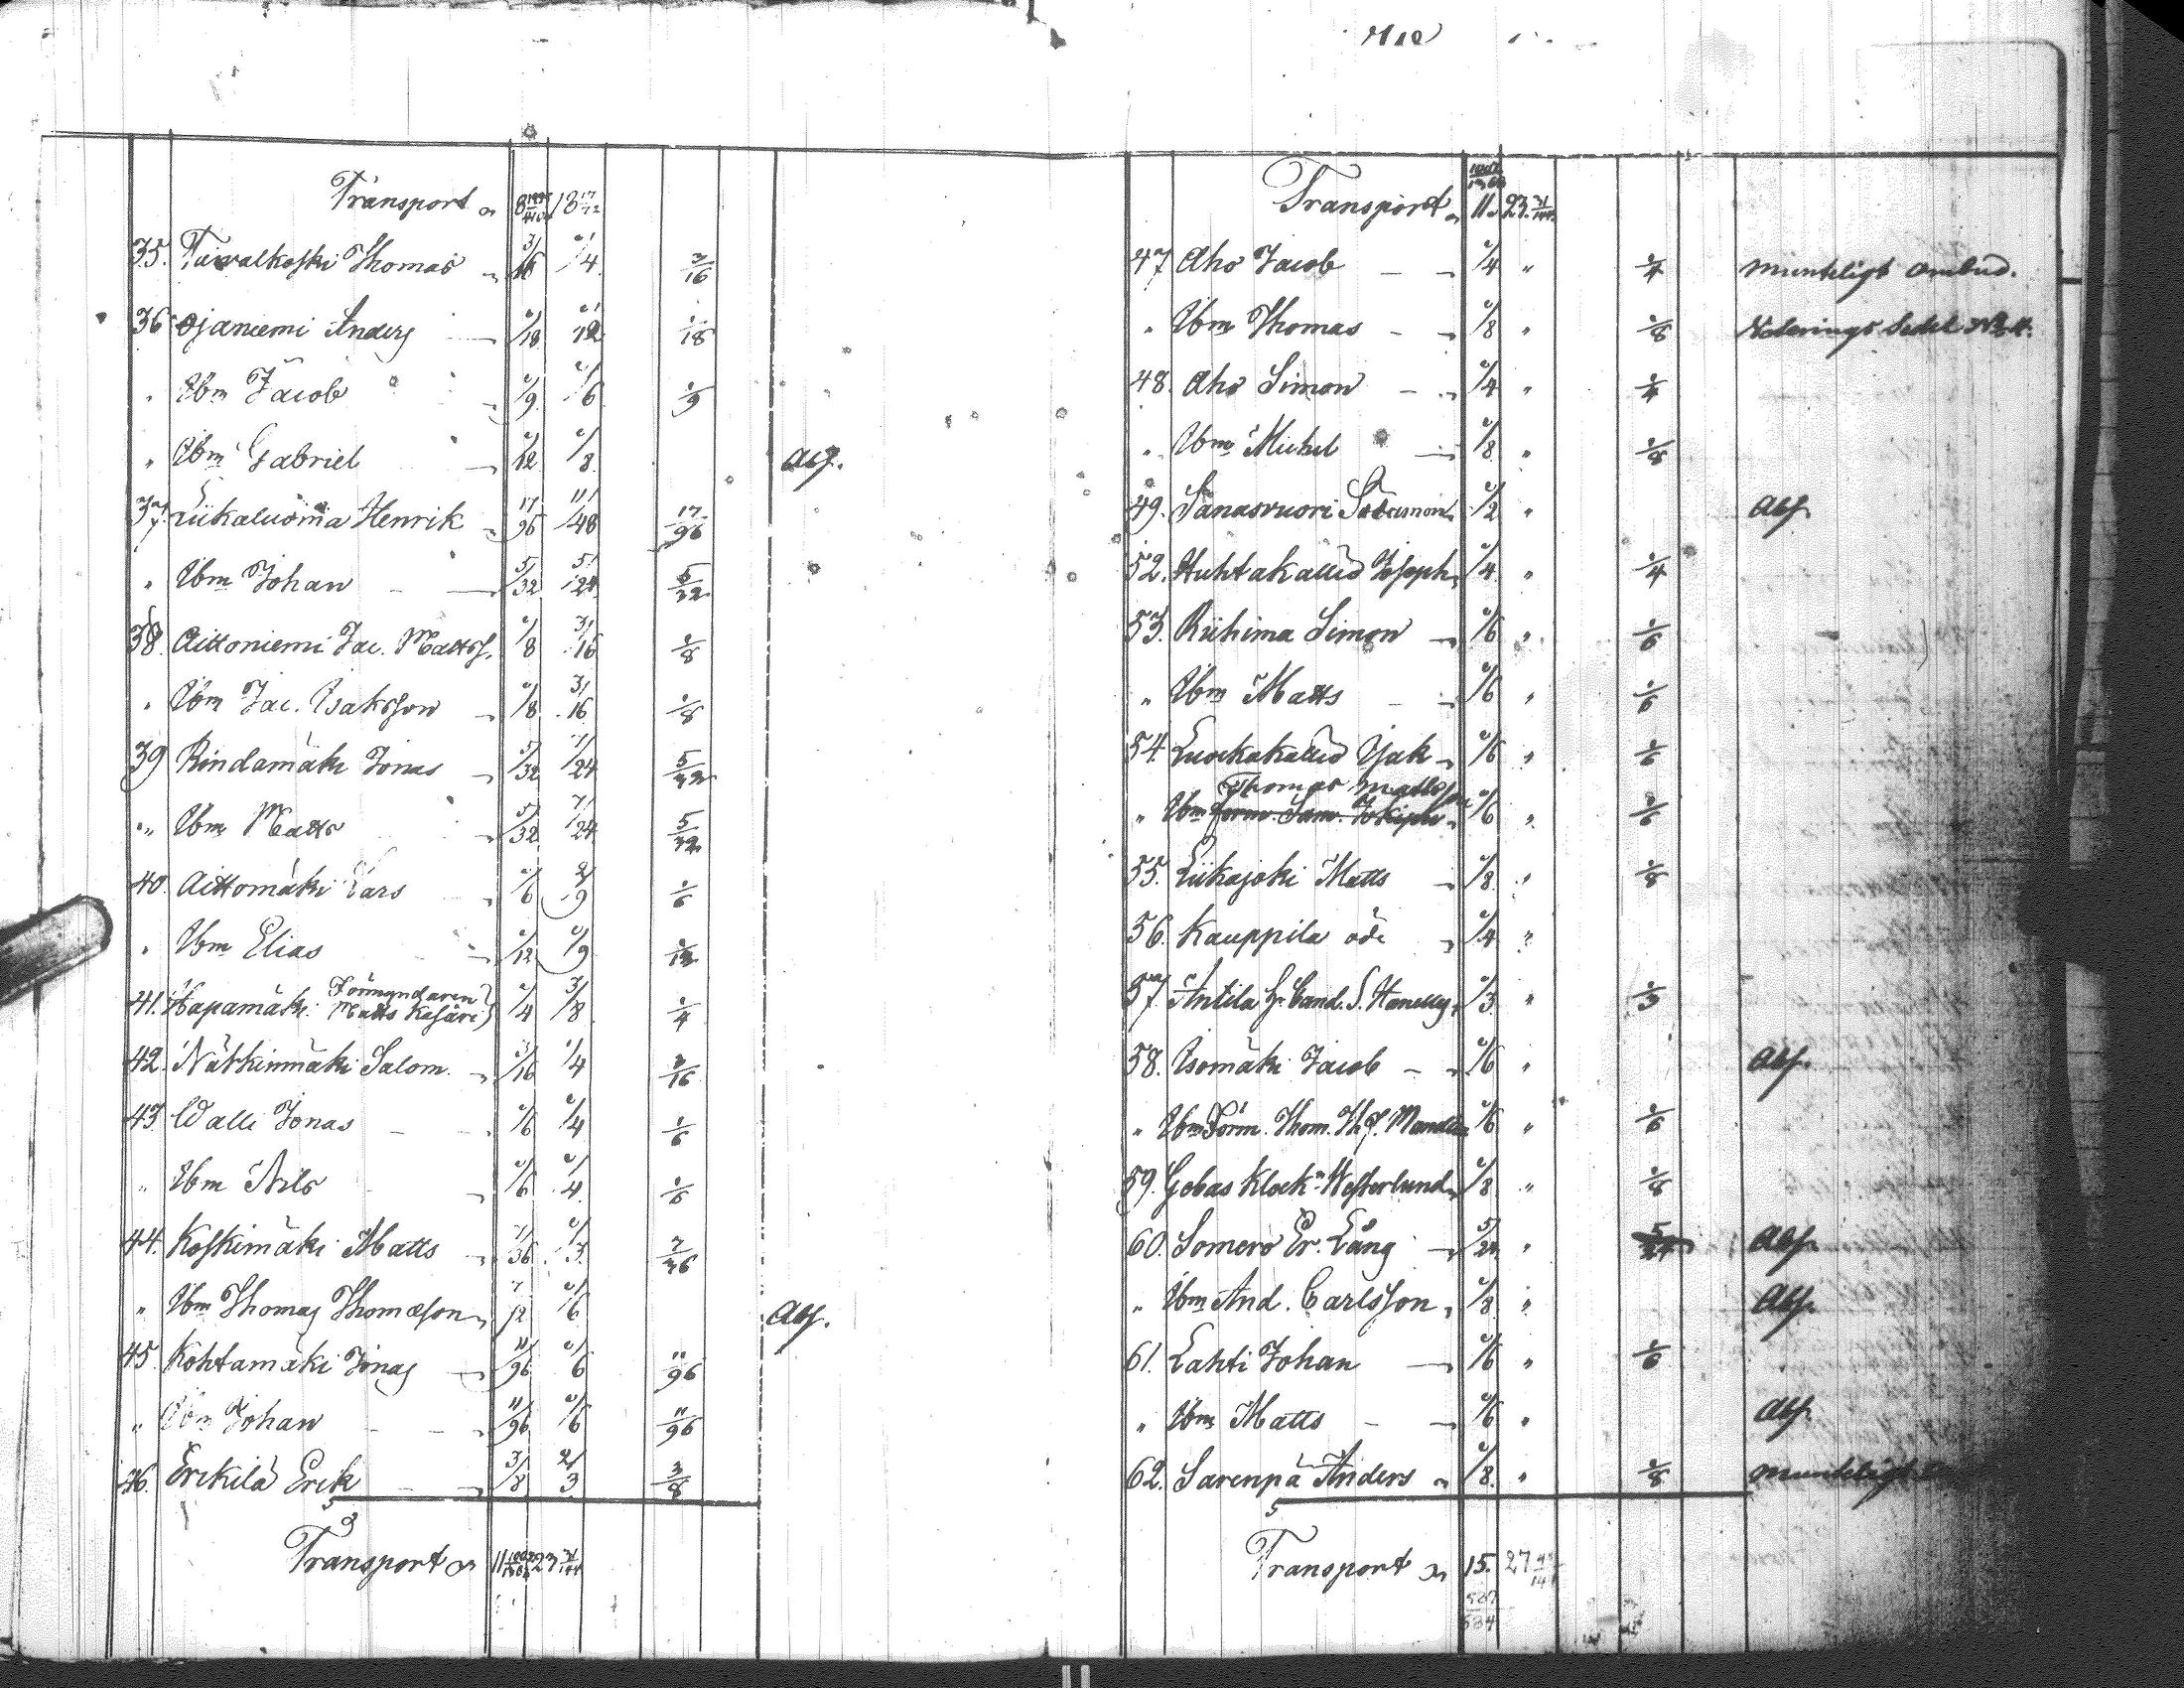 Transport 8 18 17/72
35. Tuvalkoski Thomas 3/16 1/4 3/16
36 Ojaniemi Anders 1/18 1/12 1/18
" Ibm Jacob 1/9 1/6 1/9
" Ibm Gabriel 1/12 1/8 Abs.
37. Liikaluoma Henrik 17/96 11/48 17/96
" Ibm Johan 5/32 5/24 5/32
38. Aittoniemi Jac. Mattss. 1/8 3/16 1/8
" Ibm Jac. Isaksson 1/8 3/16 1/8
39 Rindamäki Jonas 5/32 7/24 5/32
" Ibm Matts 5/32 7/24 5/32
40. Aittomäki Lars 1/6 2/9 1/6
" Ibm Elias 1/12 1/9 1/12
41. Hapamäki Förmyndaren Matts Kasäri 1/4 3/8 1/4
42. Nätkinmäki Salom. 3/16 1/4 3/16
43. Walli Jonas 1/6 1/4 1/6
" Ibm Nils 1/6 1/4 1/6
44. Koskimäki Matts 7/36 1/3 7/36
" Ibm Thomas Thomasson 1/6 Abs.
45. Kohtamäki Jonas 11/96 1/6 11/96
" Ibm Johan 11/96 1/6 11/96
46. Erkilä Erik 3/8 2/3 3/8
Transport 11 23 31/144
Transport 11. 23. 31/144
47 Aho Jacob 1/4 " 1/4 Muntligt ombud.
" Ibm Thomas 1/8 " 1/8 Noterings Sedel
48. Aho Simon 1/4 " 1/4
" Ibm Michel 1/8 " 1/8
49. Sanasvuori Salomon 1/2 " Abs.
52. Huhtakallio Joseph 1/4 " 1/4
53. Riihima Simon 1/6 " 1/6
" Ibm Matts 1/6 " 1/6
54. Luokakallio Isak 1/6 " 1/6
Thomas Mattsson
" Ibm Form. Sam. 1/6 " 1/6
55. Liikajoki Matts 1/8 " 1/8
56. Kauppila öde 1/4 "
57 Antila H. Cand. S. 1/3 " 1/3
58. Isomäki Jacob 1/6 " Abs.
" Ibm Förm. Thom. 1/6 " 1/6
59. Gobas Klock. Westerlund 1/8 " 1/8
60. Somero Er. Lång 5/24 " 5/24 Abs.
" Ibm And. Carlsson 1/8 " Abs.
61. Lahti Johan 1/6 " 1/6
" Ibm Matts 1/6 " Abs.
62. Sarenpä Anders 1/8 " 1/8 Muntligt
Transport 15. 27